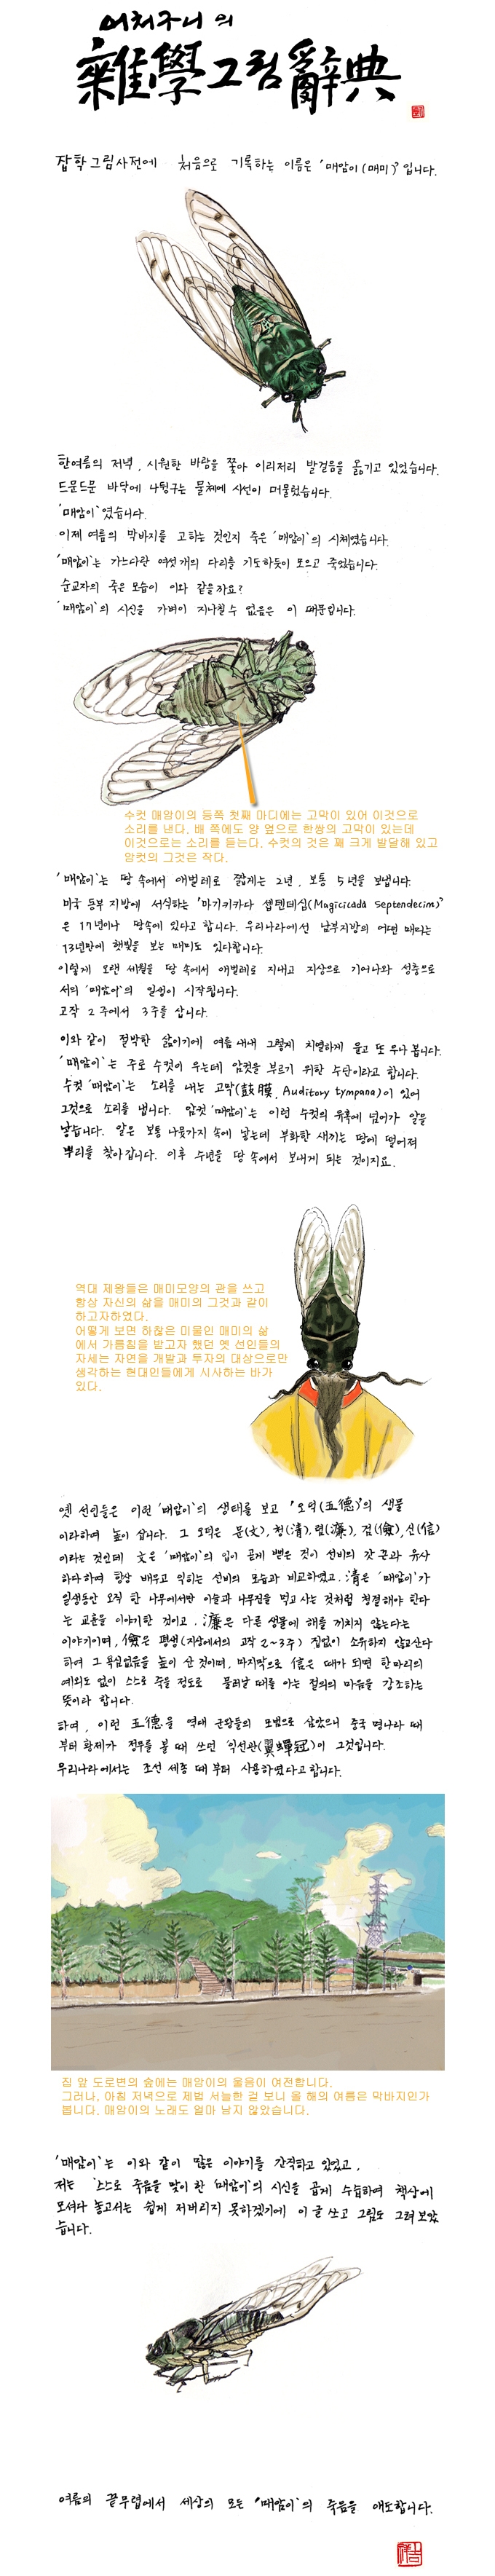 어처구니의
雜學그림辭典
잡학그림사전에 처음으로 기록하는 이름은 '매암이(매미)'입니다.
한여름의 저녁, 시원한 바람을 쫓아 이리저리 발걸음을 옮기고 있었습니다.
드문드문 바닥에 나뒹구는 물체에 시선이 머물렀습니다.
'매암이'였습니다.
이제 여름의 막바지를 고하는 것인지 죽은 '매암이'의 시체였습니다.
'매암이'는 가느다란 여섯개의 다리를 기도하듯이 모으고 죽었습니다.
순교자의 죽은 모습이 이와 같을까요?
'매암이'의 시신을 가벼이 지나칠 수 없음은 이 때문입니다.
수컷 매암이의 등쪽 첫째 마디에는 고막이 있어 이것으로
소리를 낸다. 배 쪽에도 양 옆으로 한쌍의 고막이 있는데
이것으로는 소리를 듣는다. 수컷의 것은 꽤 크게 발달해 있고
암컷의 그것은 작다.
'매암이'는 땅 속에서 애벌레로 짧게는 2년, 보통 5년을 보냅니다.
미국 동부 지방에 서식하는 '마기키카다 셉텐데심(Magicicada Septendecim)'
은 17년이나 땅속에 있다고 합니다. 우리나라에선 남부지방의 어떤 매미는
13년만에 햇빛을 보는 매미도 있다합니다.
이렇게 오랜 세월을 땅 속에서 애벌레로 지내고 지상으로 기어나와 성충으로
서의 '매암이'의 일생이 시작됩니다.
고작 2주에서 3주를 삽니다.
이와 같이 절박한 삶이기에 여름 내내 그렇게 치열하게 울고 또 우나 봅니다.
'매암이'는 주로 수컷이 우는데 암컷을 부르기 위한 수단이라고 합니다.
수컷 '매암이'는 소리를 내는 고막(鼓膜, Auditory tympana)이 있어
그것으로 소리를 냅니다. 암컷 '매암이'는 이런 수컷의 유혹에 넘어가 알을
낳습니다. 알은 보통 나뭇가지 속에 낳는데 부화한 새끼는 땅에 떨어져
뿌리를 찾아갑니다. 이후 수년을 땅 속에서 보내게 되는 것이지요.
역대 제왕들은 매미모양의 관을 쓰고
항상 자신의 삶을 매미의 그것과 같이
하고자하였다.
어떻게 보면 하찮은 미물인 매미의 삶
에서 가름침을 받고자 했던 옛 선인들의
자세는 자연을 개발과 투자의 대상으로만
생각하는 현대인들에게 시사하는 바가
있다.
옛 선인들은 이런 '매암이'의 생태를 보고 '오덕(五德)'의 생물
이라하며 높이 삽니다. 그 오덕은 문(文), 청(淸), 렴(濂), 검(儉), 신(信)
이라는 것인데 文은 '매암이'의 입이 곧게 뻗은 것이 선비의 갓 끈과 유사
하다하며 항상 배우고 익히는 선비의 모습과 비교하였고, 淸은 '매암이'가
일생동안 오직 한 나무에서만 이슬과 나무진을 먹고 사는 것처럼 청결해야 한다
는 교훈을 이야기한 것이고, 濂은 다른 생물에 해를 끼치지 않는다는
이야기이며, 儉은 평생(지상에서의 고작 2~3주) 집없이 소유하지 않고산다
하여 그 욕심없음을 높이 산 것이며, 마지막으로 信은 때가 되면 한마리의
예외도 없이 스스로 죽을 정도로 물러날 때를 아는 절의의 마음을 강조하는
뜻이라 합니다.
하여, 이런 五德을 역대 군왕들의 모범으로 삼았으니 중국 명나라 때
부터 황제가 정무를 볼 때 쓰던 '익선관(翼蟬冠)이 그것입니다.
우리나라에서는 조선 세종 때 부터 사용하였다고 합니다.
집 앞 도로변의 숲에는 매암이의 울음이 여전합니다.
그러나, 아침 저녁으로 제법 서늘한 걸 보니 올 해의 여름은 막바지인가
봅니다. 매암이의 노래도 얼마 남지 않았습니다.
'매암이'는 이와 같이 많은 이야기를 간직하고 있었고,
저는 '스스로 죽음을 맞이한 '매암이'의 시신을 곱게 수습하여 책상에
모셔다 놓고서는 쉽게 저버리지 못하겠기에 이 글 쓰고 그림도 그려 보았
습니다.
여름의 끝무렵에서 세상의 모든 '매암이'의 죽음을 애도합니다.